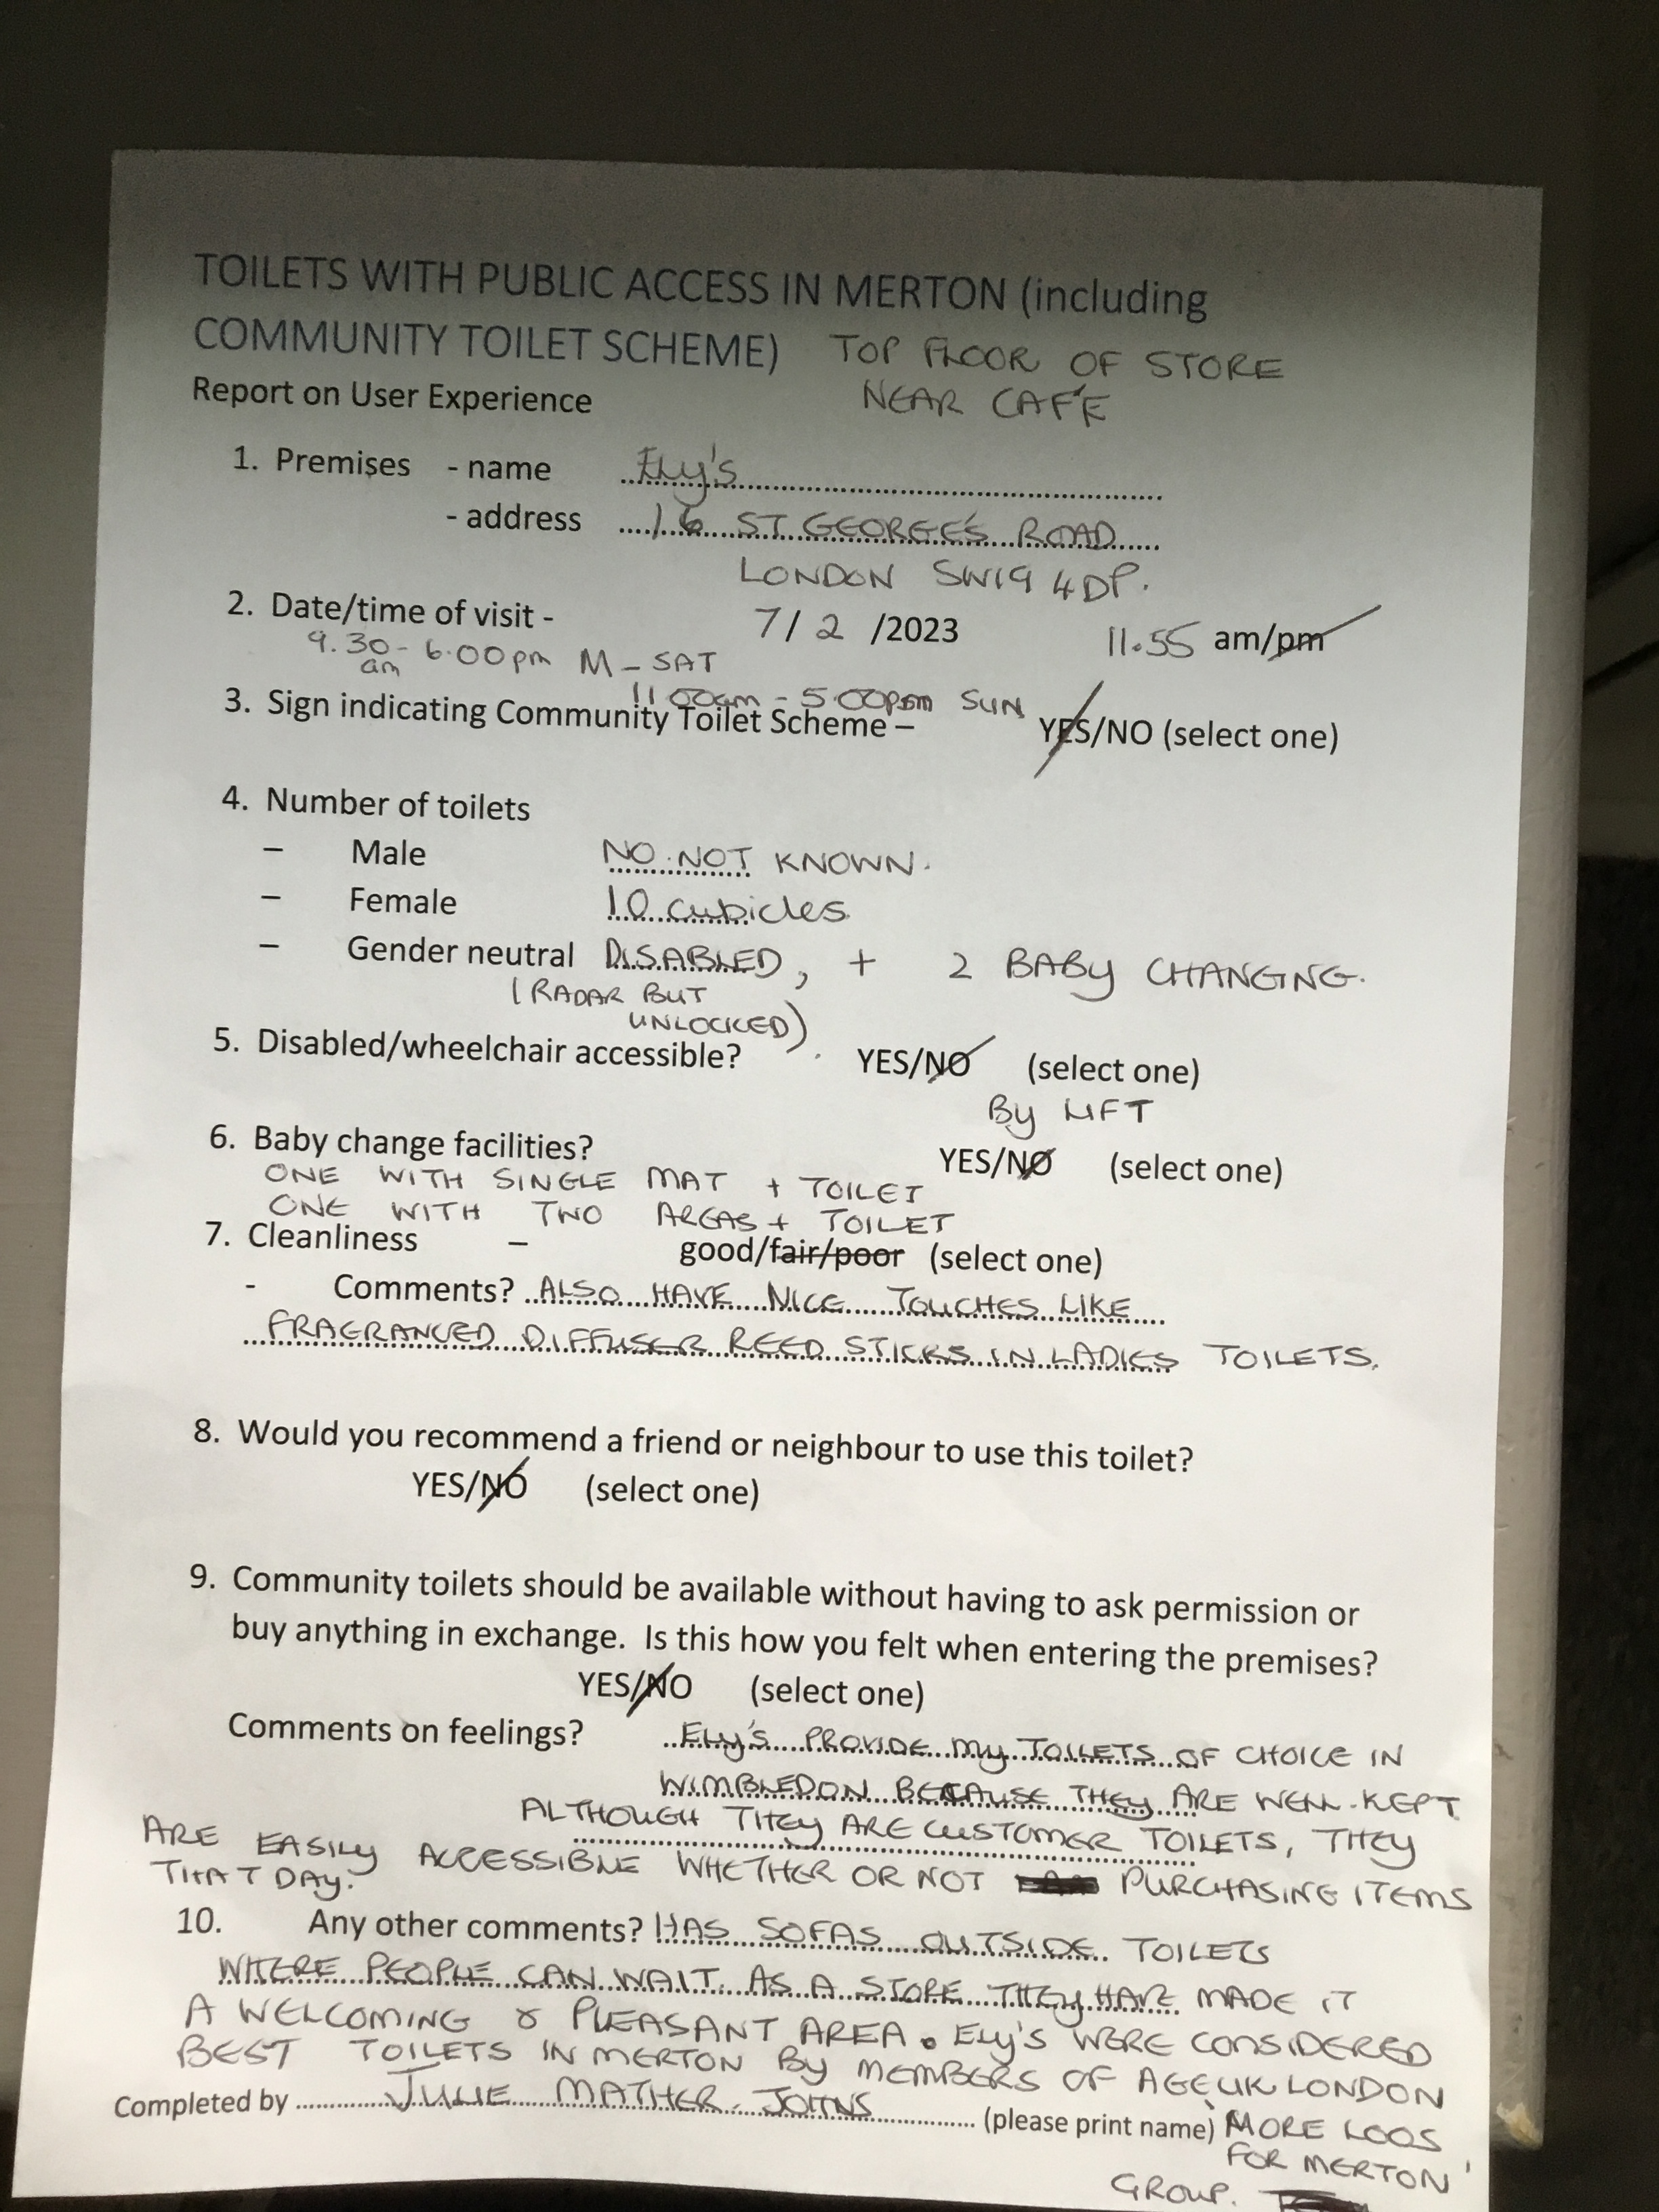 TOILETS WITH PUBLIC ACCESS IN MERTON (including
COMMUNITY TOILET SCHEME) TOP FLOOR OF STORE
NEAR CAFÉ
Report on User Experience
1. Premises - name Ely's
- address 16 ST. GEORGE'S ROAD
LONDON SW19 4DP.
2. Date/time of visit - 7/ 2 /2023 11.55 am/pm
9.30am - 6.00pm M - SAT
11.00am - 5.00pm SUN
3. Sign indicating Community Toilet Scheme – YES/NO (select one)
4. Number of toilets
– Male NO. NOT KNOWN.
– Female 10 cubicles
– Gender neutral DISABLED, + 2 BABY CHANGING.
(RADAR BUT
UNLOCKED).
5. Disabled/wheelchair accessible? YES/NO (select one)
By LIFT
6. Baby change facilities? YES/NO (select one)
ONE WITH SINGLE MAT + TOILET
ONE WITH TWO AREAS + TOILET
7. Cleanliness – good/fair/poor (select one)
- Comments? ALSO HAVE NICE TOUCHES LIKE
FRAGRANCED DIFFUSER REED STICKS IN LADIES TOILETS.
8. Would you recommend a friend or neighbour to use this toilet?
YES/NO (select one)
9. Community toilets should be available without having to ask permission or
buy anything in exchange. Is this how you felt when entering the premises?
YES/NO (select one)
Comments on feelings? Ely's PROVIDE my TOILETS OF CHOICE IN
WIMBLEDON BECAUSE THEy ARE WELL-KEPT
ALTHOUGH THEy ARE CUSTOMER TOILETS, THEY
ARE EASILY ACCESSIBLE WHETHER OR NOT PURCHASING ITEMS
THAT DAY.
10. Any other comments? HAS SOFAS OUTSIDE TOILETS
WHERE PEOPLE CAN WAIT. AS A STORE THEy HAVE MADE IT
A WELCOMING & PLEASANT AREA. Ely'S WERE CONSIDERED
BEST TOILETS IN MERTON By MEMBERS OF AGE UK LONDON
Completed by JULIE MATHER-JOHNS (please print name) 'MORE LOOS
FOR MERTON'
GROUP.